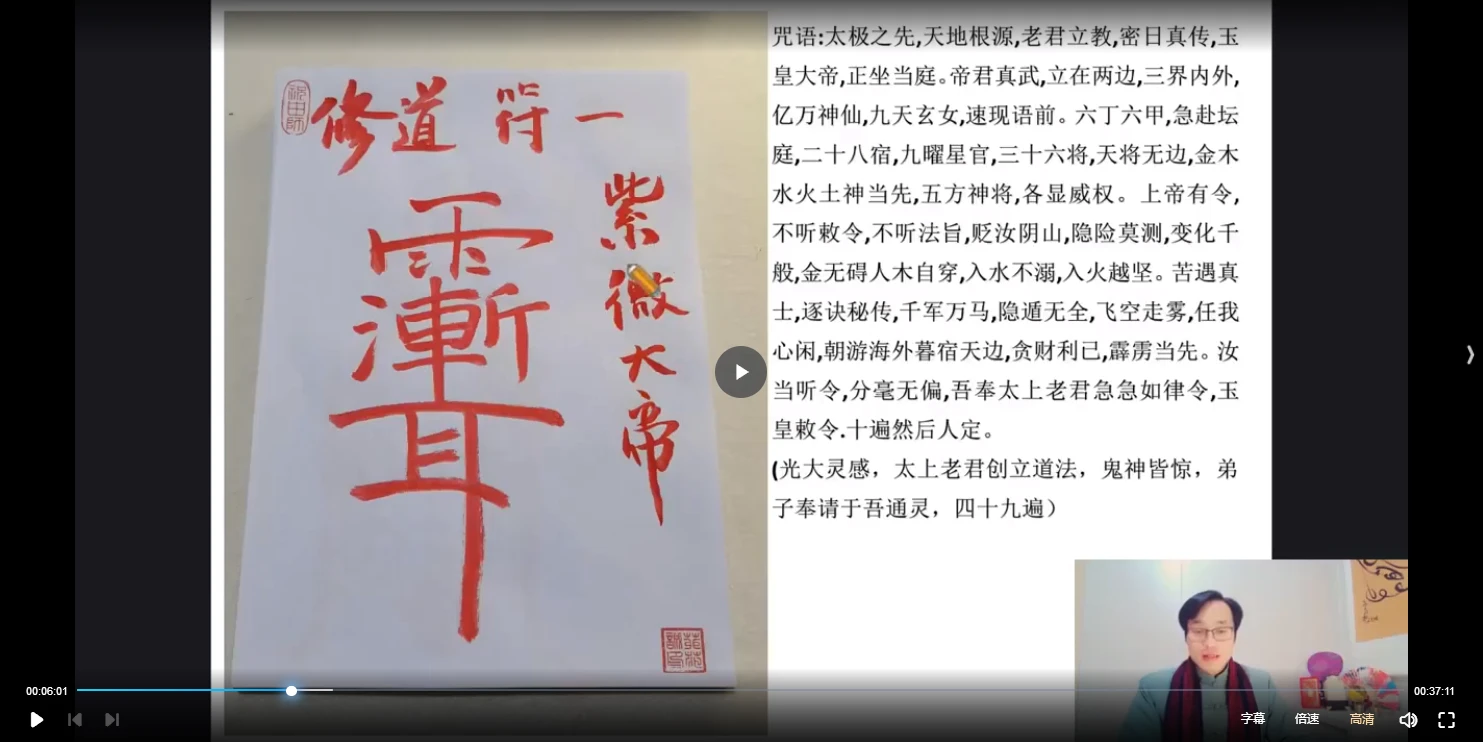 修道符一
紫微大帝
咒语:太极之先,天地根源,老君立教,密日真传,玉
皇大帝,正坐当庭。帝君真武,立在两边,三界内外,
亿万神仙,九天玄女,速现语前。六丁六甲,急赴坛
庭,二十八宿,九曜星官,三十六将,天将无边,金木
水火土神当先,五方神将,各显威权。上帝有令,
不听敕令,不听法旨,贬汝阴山,隐险莫测,变化千
般,金无碍人木自穿,入水不溺,入火越坚。苦遇真
士,逐诀秘传,千军万马,隐遁无全,飞空走雾,任我
心闲,朝游海外暮宿天边,贪财利已,霹雳当先。汝
当听令,分毫无偏,吾奉太上老君急急如律令,玉
皇敕令.十遍然后人定。
(光大灵感，太上老君创立道法，鬼神皆惊，弟
子奉请于吾通灵，四十九遍）
00:06:01
00:37:11
字幕
倍速
高清